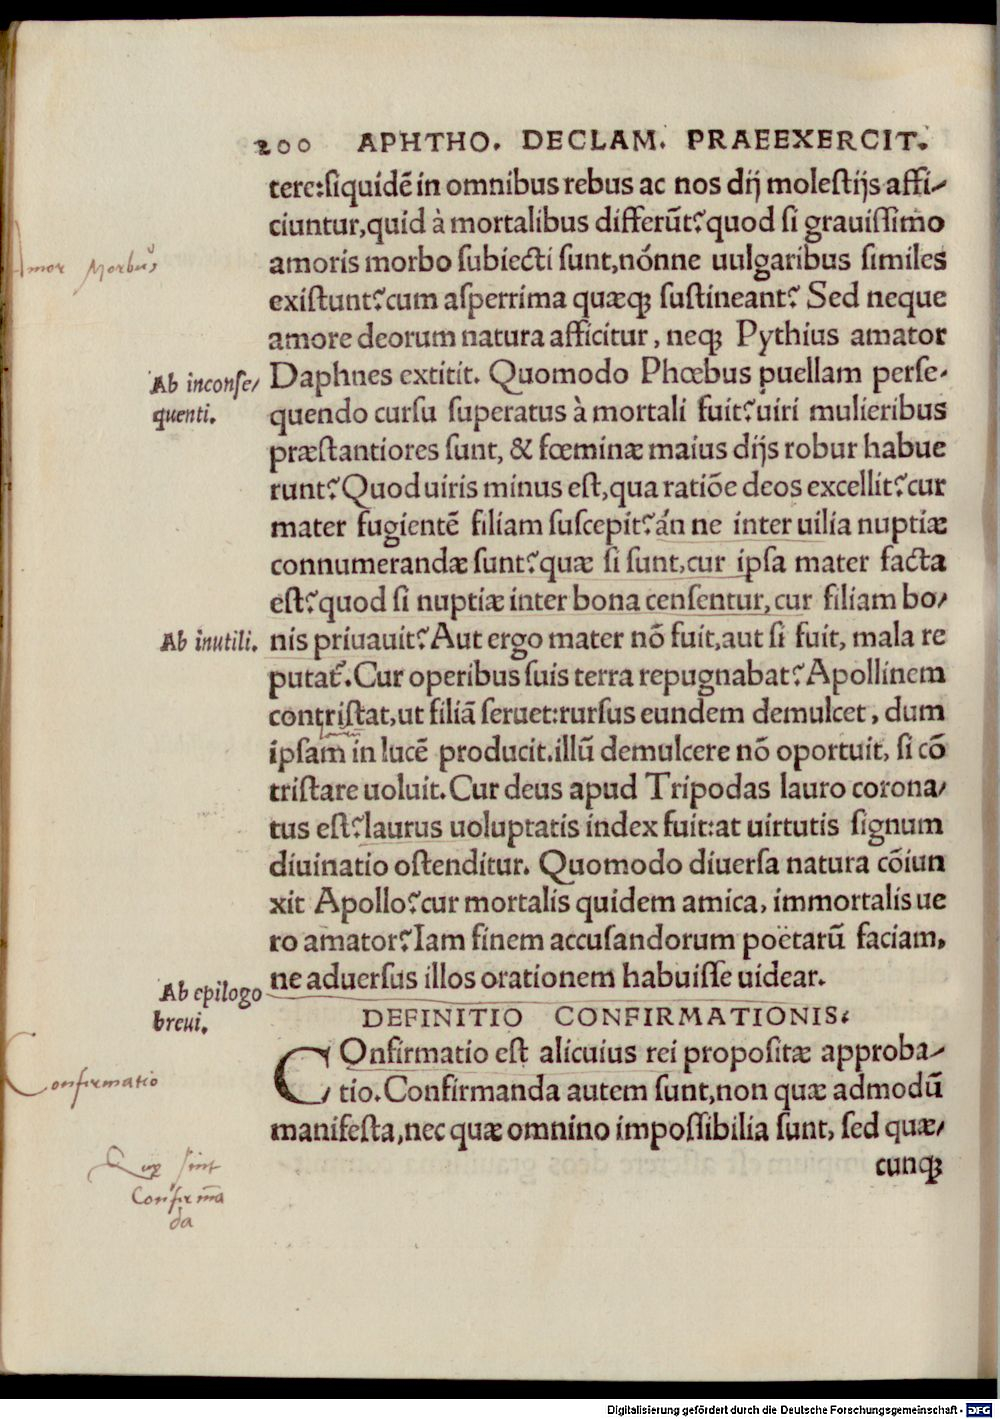 200 APHTHO. DECLAM. PRAEEXERCIT.
tere:siquidē in omnibus rebus ac nos dij molestijs affi-
ciuntur,quid à mortalibus differūt?quod si grauissimo
Amor Morbus
amoris morbo subiecti sunt,nónne uulgaribus similes
existunt?cum asperrima quæq; sustineant? Sed neque
amore deorum natura afficitur, neq; Pythius amator
Ab inconse/
quenti.
Daphnes extitit. Quomodo Phœbus puellam perse-
quendo cursu superatus à mortali fuit?uiri mulieribus
præstantiores sunt, & fœminæ maius dijs robur habue
runt?Quod uiris minus est,qua ratiōe deos excellit?cur
mater fugientē filiam suscepit?án ne inter uilia nuptiæ
connumerandæ sunt?quæ si sunt,cur ipsa mater facta
est?quod si nuptiæ inter bona censentur,cur filiam bo/
Ab inutili.
nis priuauit?Aut ergo mater nō fuit,aut si fuit, mala re
putat᷑.Cur operibus suis terra repugnabat?Apollinem
contristat,ut filiā seruet:rursus eundem demulcet, dum
ipsam in lucē producit.illū demulcere nō oportuit, si cō
tristare uoluit.Cur deus apud Tripodas lauro corona/
tus est?laurus uoluptatis index fuit:at uirtutis signum
diuinatio ostenditur. Quomodo diuersa natura cōiun
xit Apollo?cur mortalis quidem amica, immortalis ue
ro amator?Iam finem accusandorum poëtarū faciam,
Ab epilogo
breui.
ne aduersus illos orationem habuisse uidear.
DEFINITIO CONFIRMATIONIS.
Confirmatio
COnfirmatio est alicuius rei propositæ approba-
tio.Confirmanda autem sunt,non quæ admodū
manifesta,nec quæ omnino impossibilia sunt, sed quæ/
cunq;
Quæ sint
Confirmā
da
Digitalisierung gefördert durch die Deutsche Forschungsgemeinschaft - DFG